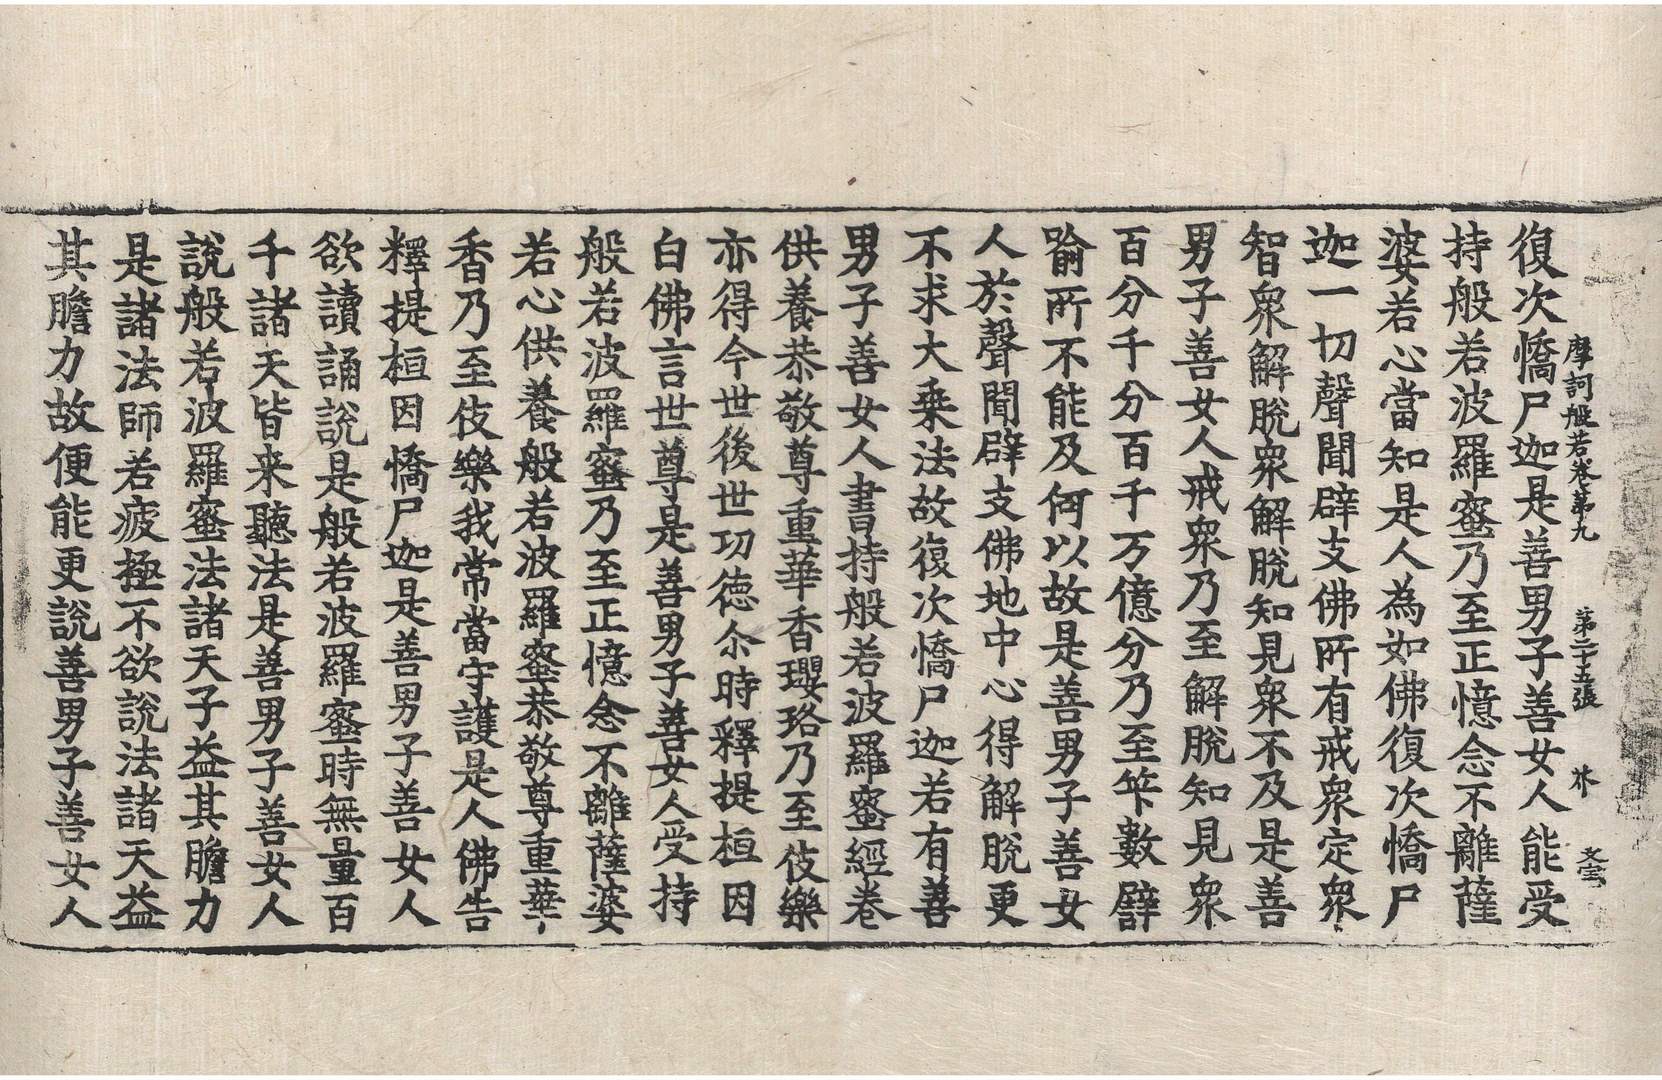 摩訶般若卷第九 第二十五張 芥
復次憍尸迦是善男子善女人能受
持般若波羅蜜乃至正憶念不離薩
婆若心當知是人為如佛復次憍尸
迦一切聲聞辟支佛所有戒衆定衆
智衆解脫衆解脫知見衆不及是善
男子善女人戒衆乃至解脫知見衆
百分千分百千万億分乃至筭數譬
喻所不能及何以故是善男子善女
人於聲聞辟支佛地中心得解脫更
不求大乘法故復次憍尸迦若有善
男子善女人書持般若波羅蜜經卷
供養恭敬尊重華香瓔珞乃至伎樂
亦得今世後世功德尒時釋提桓因
白佛言世尊是善男子善女人受持
般若波羅蜜乃至正憶念不離薩婆
若心供養般若波羅蜜恭敬尊重華
香乃至伎樂我常當守護是人佛告
釋提桓因憍尸迦是善男子善女人
欲讀誦說是般若波羅蜜時無量百
千諸天皆来聽法是善男子善女人
說般若波羅蜜法諸天子益其膽力
是諸法師若疲極不欲說法諸天益
其膽力故便能更說善男子善女人